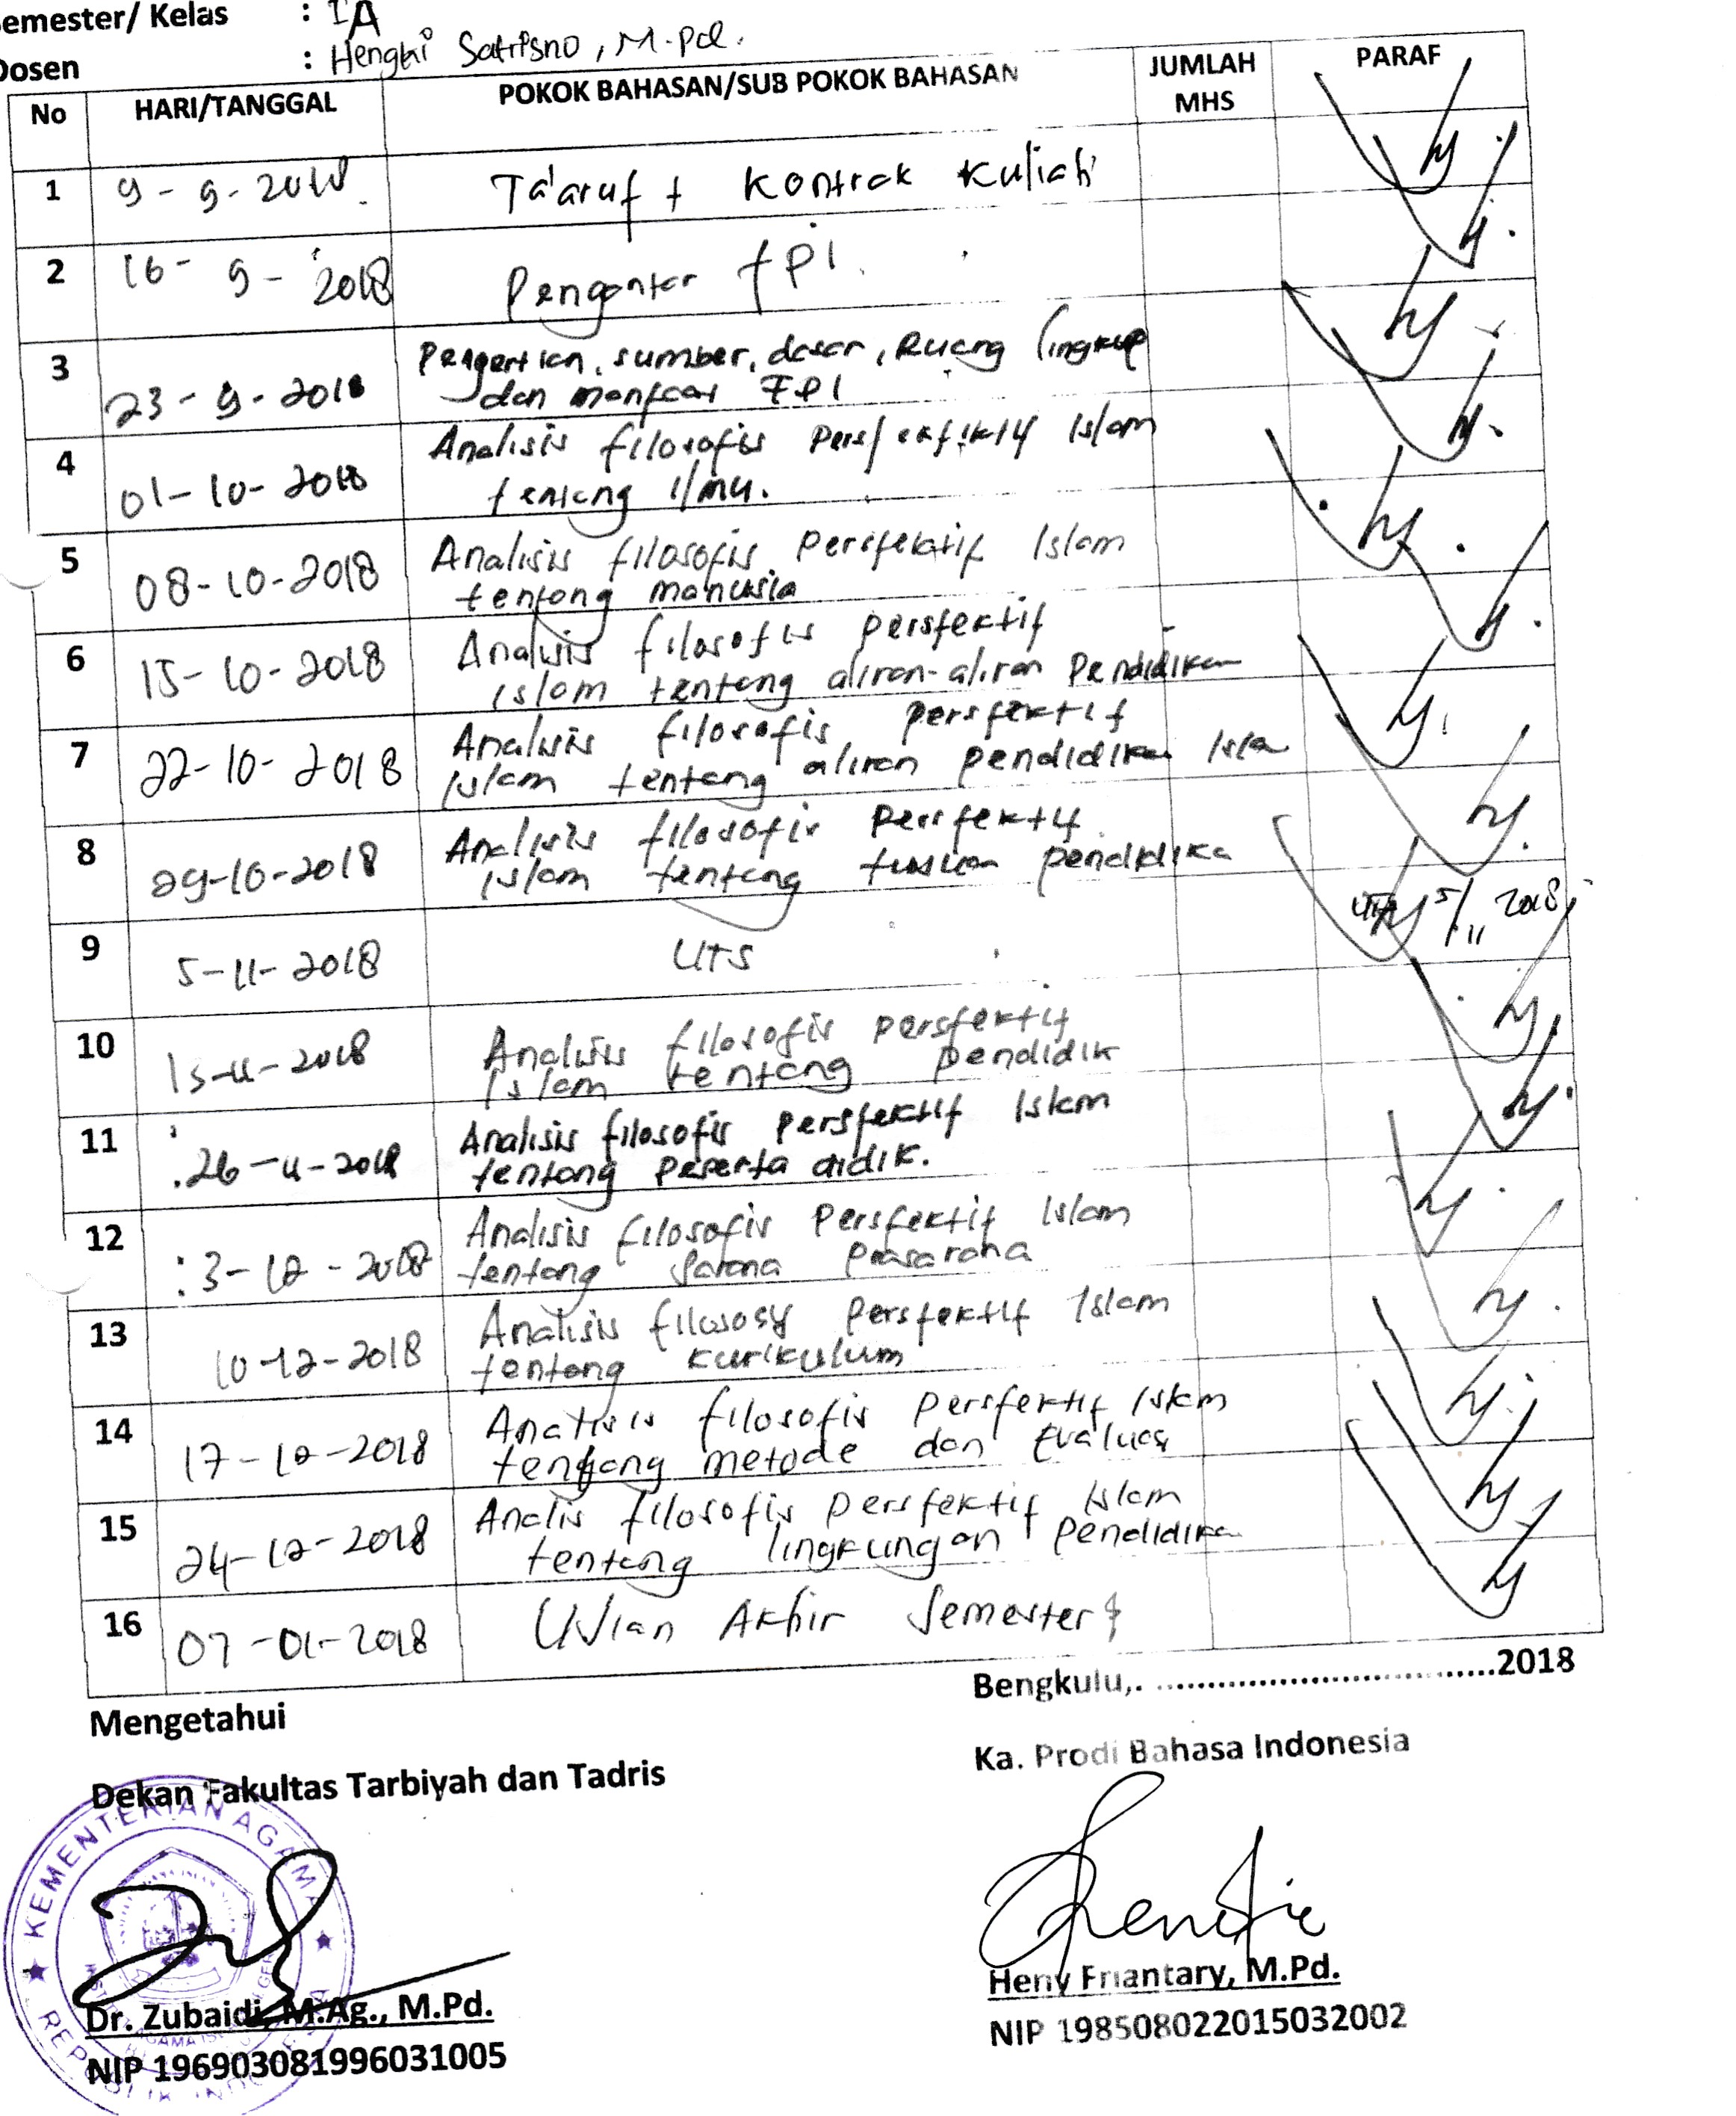 Semester/ Kelas : IA
Dosen : Hengki Satrisno, M.Pd.
No HARI/TANGGAL POKOK BAHASAN/SUB POKOK BAHASAN JUMLAH MHS PARAF
1 9-9-2018 Ta'aruf + Kontrak Kuliah
2 16-9-2018 Pengantar FPI.
3 23-9-2018 Pengertian, sumber, dasar, Ruang lingkup
dan manfaat FPI
4 01-10-2018 Analisis filosofis Islam
tentang Ilmu.
5 08-10-2018 Analisis filosofis Persfektif Islam
tentang manusia
6 15-10-2018 Analisis filosofis persfektif
Islam tentang aliran-aliran Pendidikan
7 22-10-2018 Analisis filosofis persfektif
Islam tentang aliran pendidikan Isla
8 29-10-2018 Analisis filosofis Persfektif
Islam tentang pendidika
9 5-11-2018 UTS 5/11 2018
10 Analisis filosofis persfektif
Islam tentang pendidik
11 26-11-2018 Analisis filosofis Persfektif Islam
tentang peserta didik.
12 3-12-2018 Analisis filosofis Persfektif Islam
tentang Sarana Prasarana
13 10-12-2018 Analisis Persfektif Islam
tentang kurikulum
14 17-12-2018 Analisis filosofis Persfektif Islam
tentang metode dan Evaluasi
15 24-12-2018 Analis filosofis Persfektif Islam
tentang lingkungan Pendidika
16 07-01-2018 Ujian Akhir Semester
Bengkulu,. ....................................2018
Mengetahui
Ka. Prodi Bahasa Indonesia
Dekan Fakultas Tarbiyah dan Tadris
KEMENTERIAN AGAMA
REPUBLIK INDONESIA
Heny Friantary, M.Pd.
NIP 198508022015032002
Dr. Zubaidi, M.Ag., M.Pd.
NIP 196903081996031005